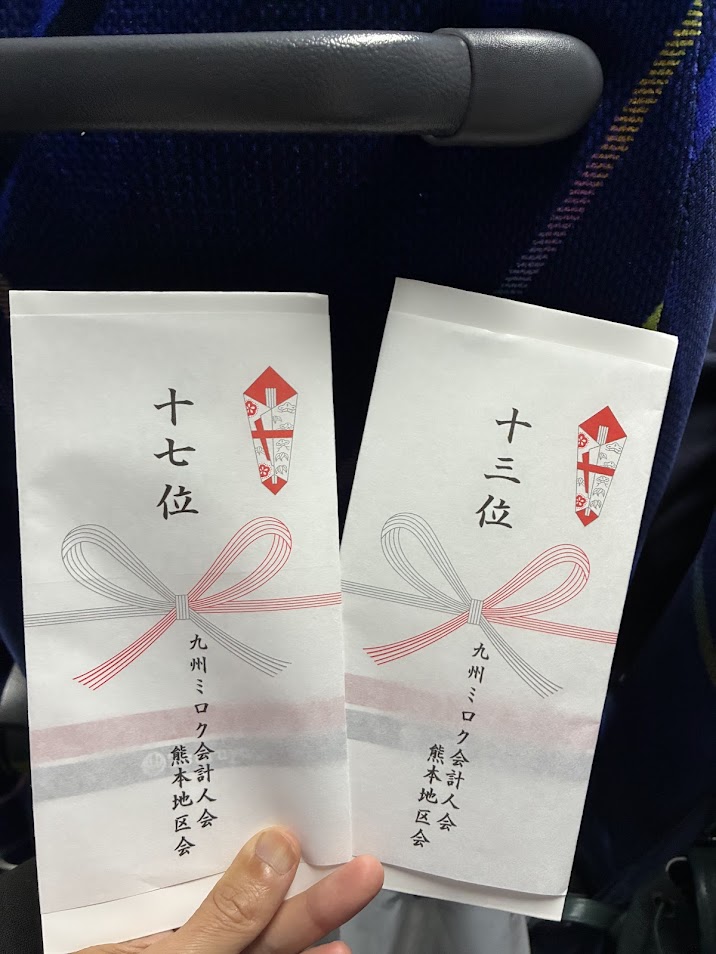 十七位
九州ミロク会計人会
熊本地区会
十三位
九州ミロク会計人会
熊本地区会